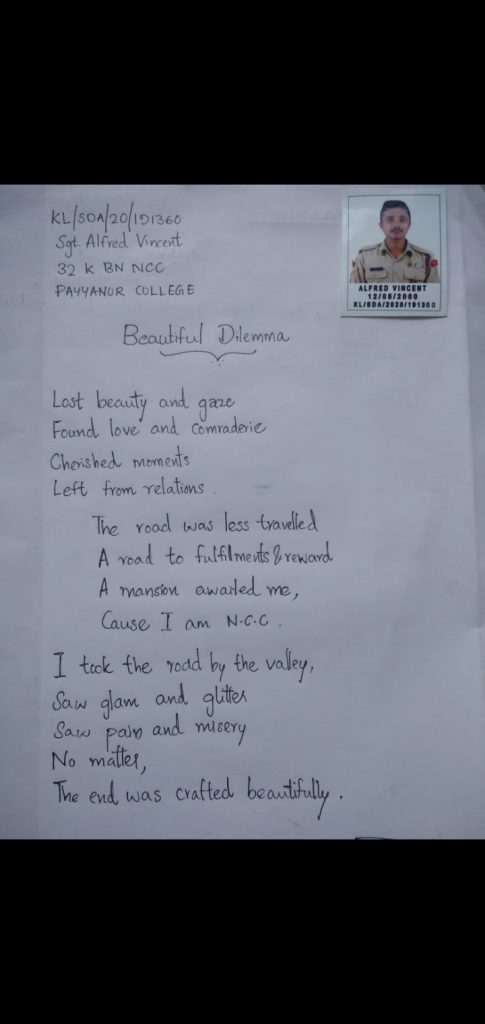 KL/SDA/20/191360
Sgt. Alfred Vincent
32 K BN NCC
PAYYANUR COLLEGE
ALFRED VINCENT
12/06/2000
KL/SDA/2020/191360
Beautiful Dilemma
Lost beauty and gaze
Found love and comraderie
Cherished moments
Left from relations.
The road was less travelled
A road to fulfilments & reward
A mansion awaited me,
Cause I am N.C.C.
I took the road by the valley,
Saw glam and glitter
Saw pain and misery
No matter,
The end was crafted beautifully.